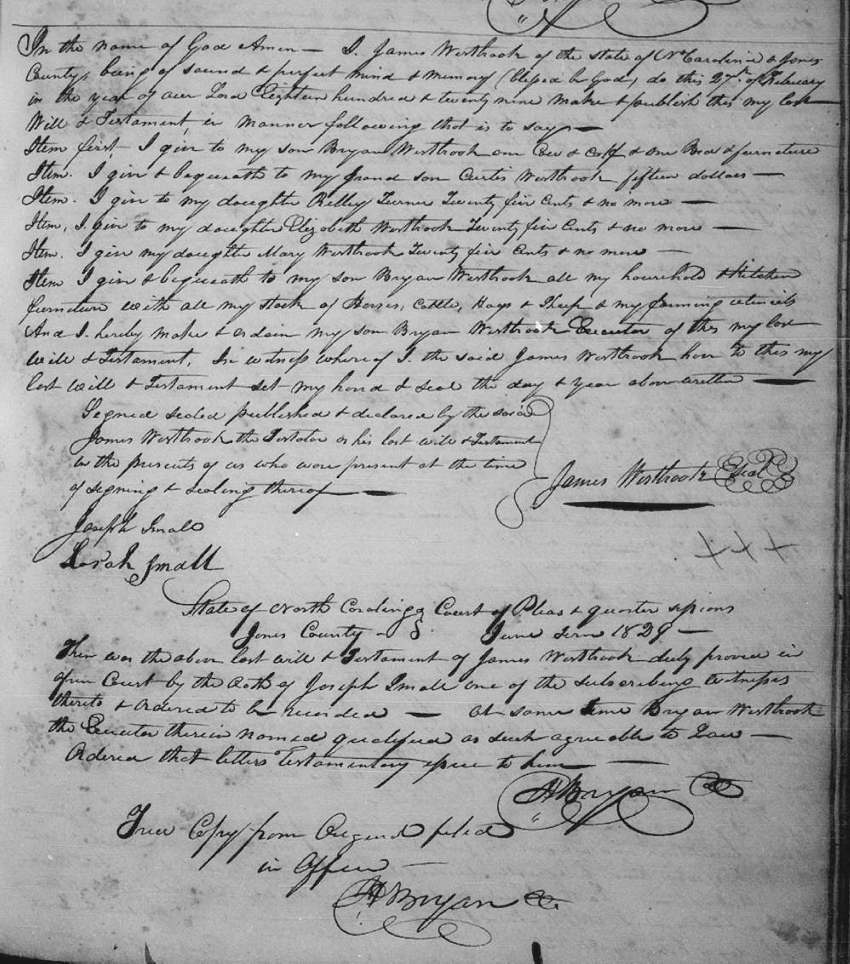 In the name of God Amen — I. James Westbrook of the state of N. Carolina & Jones
County, being of sound & perfect mind & memory (blessed be God) do this 27th of February
in the year of our Lord Eighteen hundred & twenty nine make & publish this my last
Will & Testament, in manner following that is to say —
Item first I give to my son Bryan Westbrook one Cow & Calf & one Bed & furneture
Item. I give & bequeath to my grand son Curtis Westbrook fifteen dollars —
Item. I give to my daughter Turner Twenty five Cents & no more —
Item, I give to my daughter Elizabeth Westbrook Twenty five Cents & no more —
Item. I give my daughter Mary Westbrook Twenty five Cents & no more —
Item I give & bequeath to my son Bryan Westbrook all my household & Kitchen
furneture with all my stock of Horses, Cattle, Hogs & Sheep & my farming utensils
And I hereby make & ordain my son Bryan Westbrook Executor of this my last
will & Testament. In witness whereof I. the said James Westbrook have to this my
last will & Testament set my hand & seal the day & year above written —
Signed sealed published & declared by the said
James Westbrook the Testator as his last will & Testament
in the presents of us who were present at the time
of signing & sealing thereof —
James Westbrook Seal
Joseph Small
Sarah Small
State of North Carolina Court of Pleas & quarter sessions
Jones County June Term 1829 —
Then was the above last will & Testament of James Westbrook duly proven in
open Court by the Oath of Joseph Small one of the subscribing witnesses
thereto & ordered to be recorded — At same time Bryan Westbrook
the Executor therein named qualified as such agreeable to Law —
Ordered that letters Testamentary issue to him —
H Bryan Clk
True Copy from Original filed
in Office —
H Bryan Clk